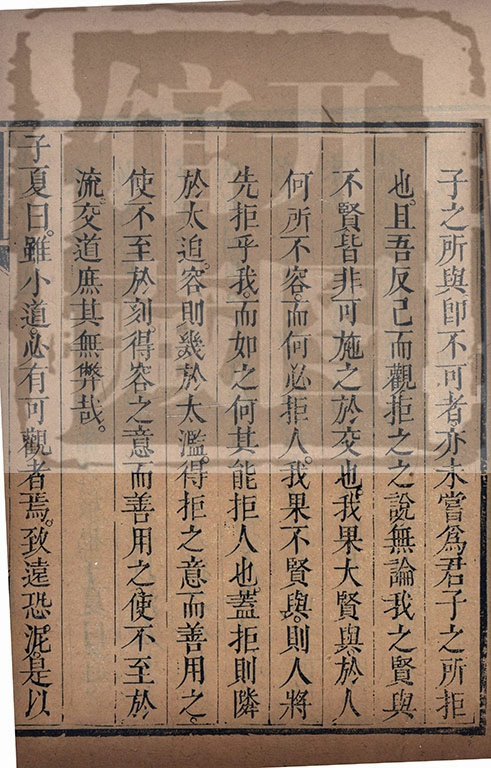 子之所與卽不可者亦未嘗爲君子之所拒
也且吾反己而觀拒之之說無論我之賢與
不賢皆非可施之於交也我果大賢與於人
何所不容而何必拒人我果不賢與則人將
先拒乎我而如之何其能拒人也蓋拒則隣
於太迫容則幾於太濫得拒之意而善用之
使不至於刻得容之意而善用之使不至於
流交道庶其無弊哉
子夏曰雖小道必有可觀者焉致遠恐泥是以